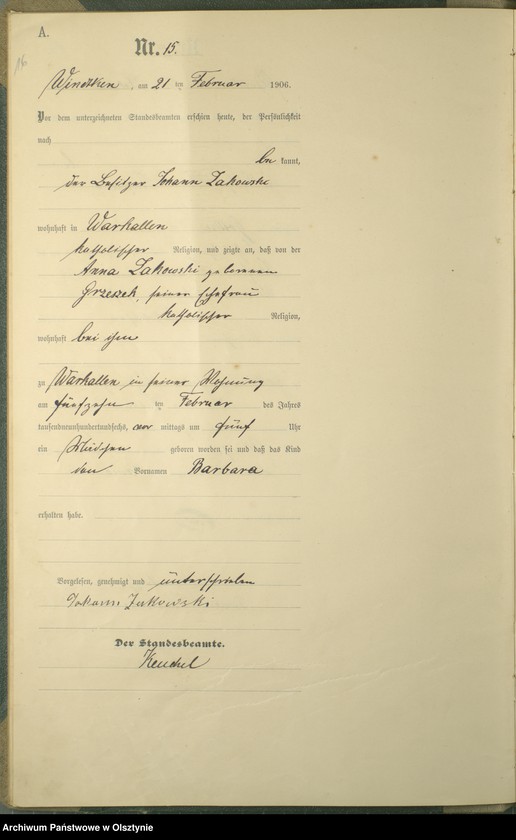 A.
16
Nr. 15.
am 21 ten Februar 1906.
Von dem unterzeichneten Standesbeamten erschien heute, der Persönlichkeit
nach
be kannt,
der Besitzer Johann Zakowski
wohnhaft in Warkallen
katholischer Religion, und zeigte an, daß von der
Anna Zakowski geborenen
Grzeszek, seiner Ehefrau
katholischer Religion,
wohnhaft bei ihm
zu Warkallen in seiner Wohnung
am fünfzehn ten Februar des Jahres
tausendneunhundertundsechs, vor mittags um fünf Uhr
ein Mädchen geboren worden sei und daß das Kind
den Vornamen Barbara
erhalten habe.
Vorgelesen, genehmigt und unterschrieben
Johann Zakowski
Der Standesbeamte.
Archiwum Państwowe w Olsztynie